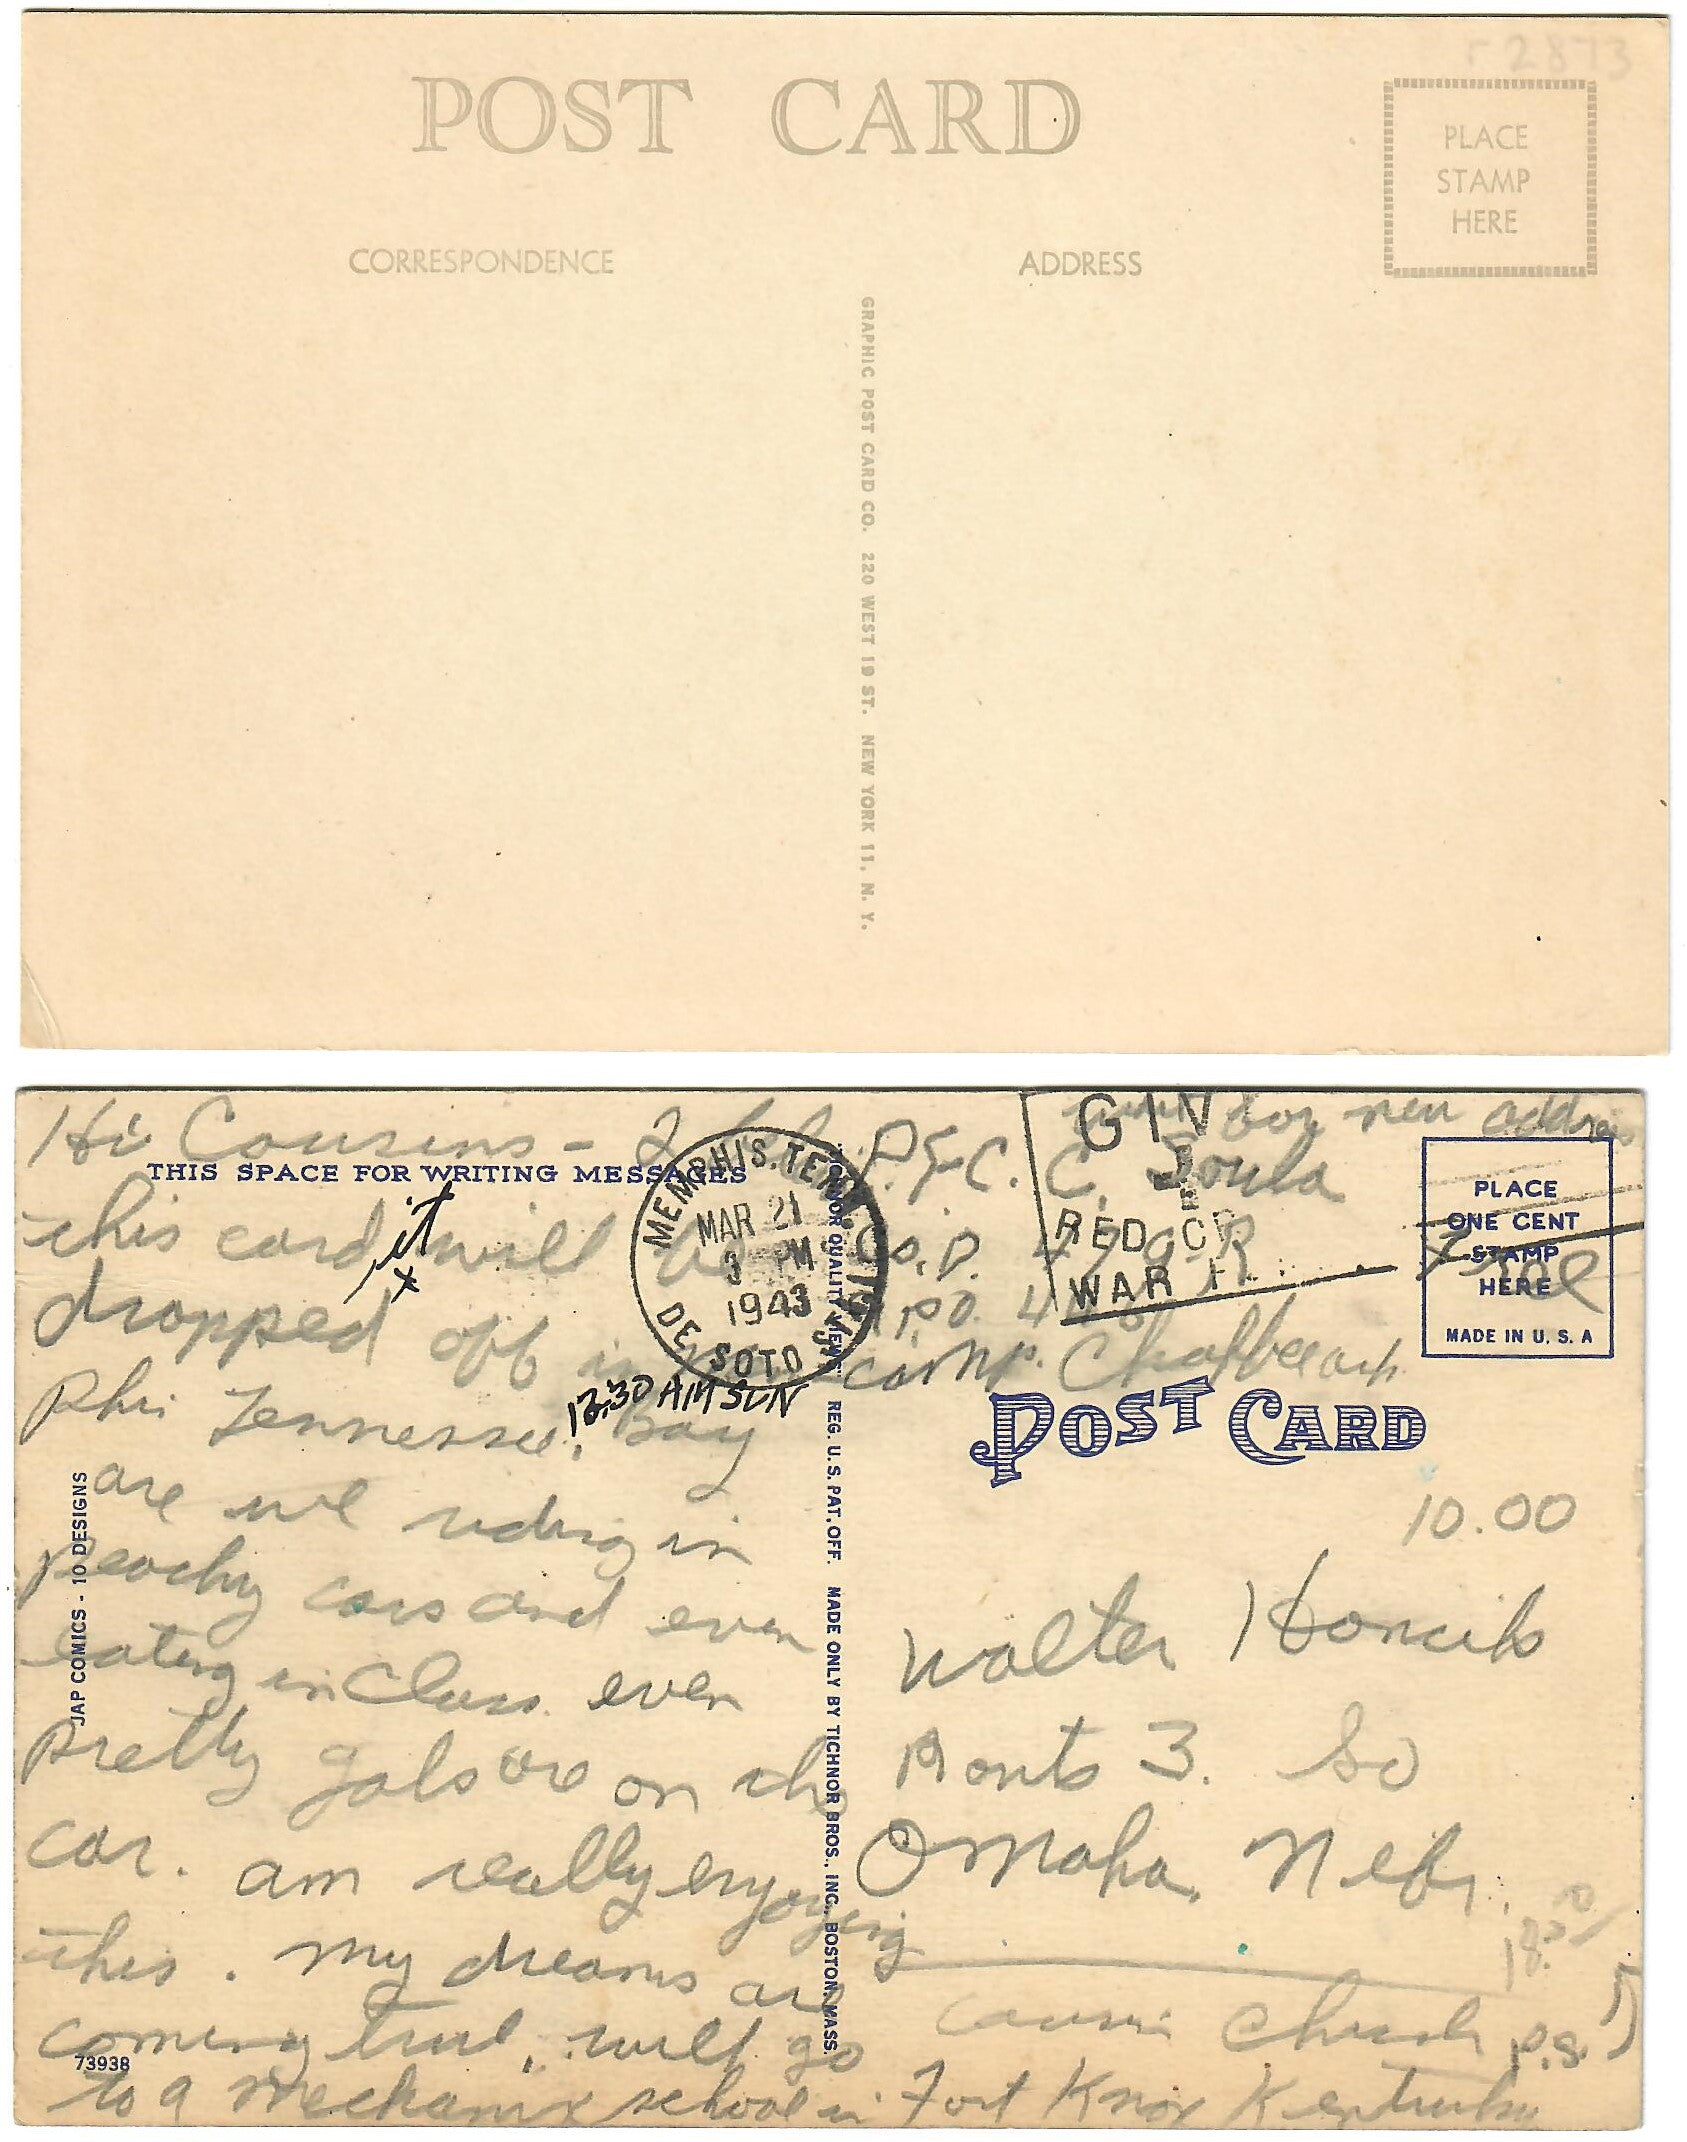 2873
POST CARD
PLACE
STAMP
HERE
CORRESPONDENCE
ADDRESS
GRAPHIC POST CARD CO. 220 WEST 19 ST. NEW YORK 11, N. Y.
Hi Cousins -
THIS SPACE FOR WRITING MESSAGES
this card, it will be
dropped off in
Phi Tennessee. Boy
12:30 AM SUN
are we riding in
peachy cars and even
eating in Class even
pretty gals are on the
car. am really enjoying
this. My dreams are
coming true, will go
to a Mechanix school in Fort Knox Kentucky
JAP COMICS - 10 DESIGNS
73938
MEMPHIS, TENN.
MAR 21
3 PM
1943
DE SOTO STA.
TICHNOR QUALITY VIEWS REG. U. S. PAT. OFF. MADE ONLY BY TICHNOR BROS., INC., BOSTON, MASS.
for new address
P.F.C. C.
GIV
RED CR
WAR F
Co. D.
A.P.O.
Camp
Free
PLACE
ONE CENT
STAMP
HERE
MADE IN U. S. A
POST CARD
10.00
Walter
Route 3. So
Omaha, Nebr.
18.
cousin
P.S.